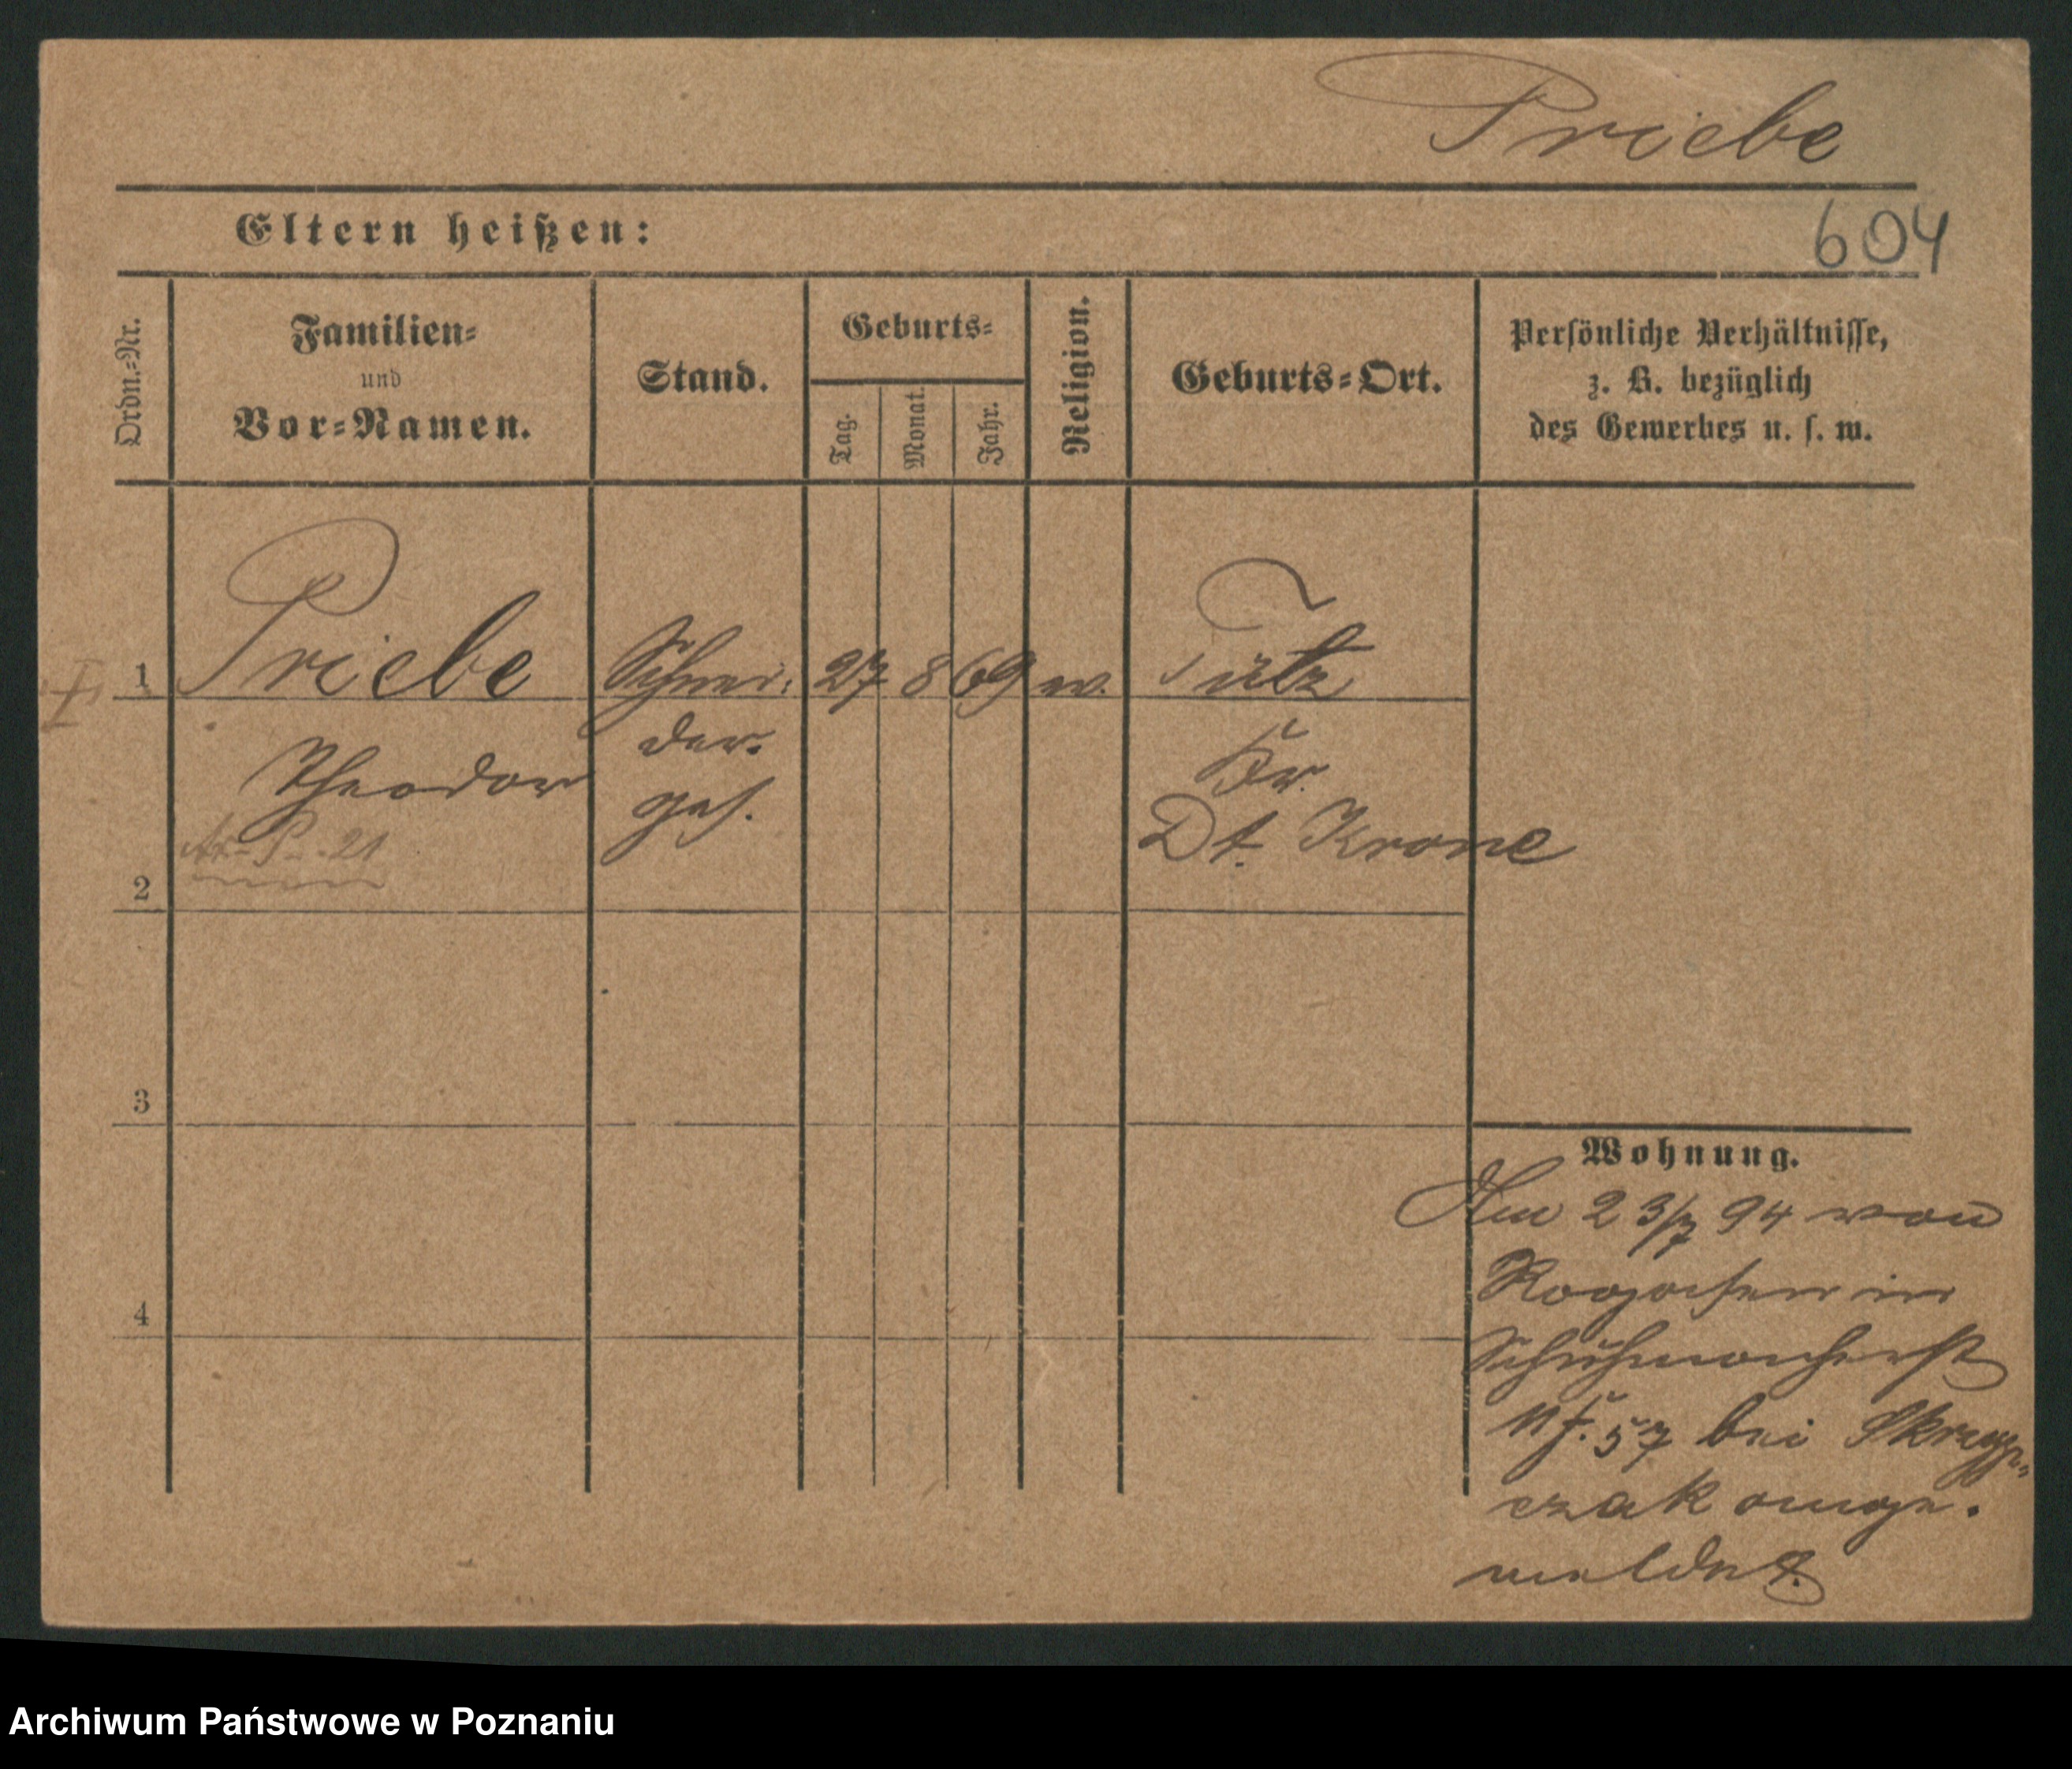 Priebe
Eltern heißen:
604
Ordn.=Nr.
Familien=
und
Vor=Namen.
Stand.
Geburts=
Tag.
Monat.
Jahr.
Religion.
Geburts=Ort.
Persönliche Verhältnisse,
z. B. bezüglich
des Gewerbes u. s. w.
1
Priebe
Schnei:
27
8
69
Tütz
Theodor
der.
ges.
Kr.
Dt. Krone
2
3
4
Wohnung.
Am 23/7 94 von
Rogasen in
Schuhmacherst
57 bei Skrzyp=
czak ange.
meldet.
Archiwum Państwowe w Poznaniu